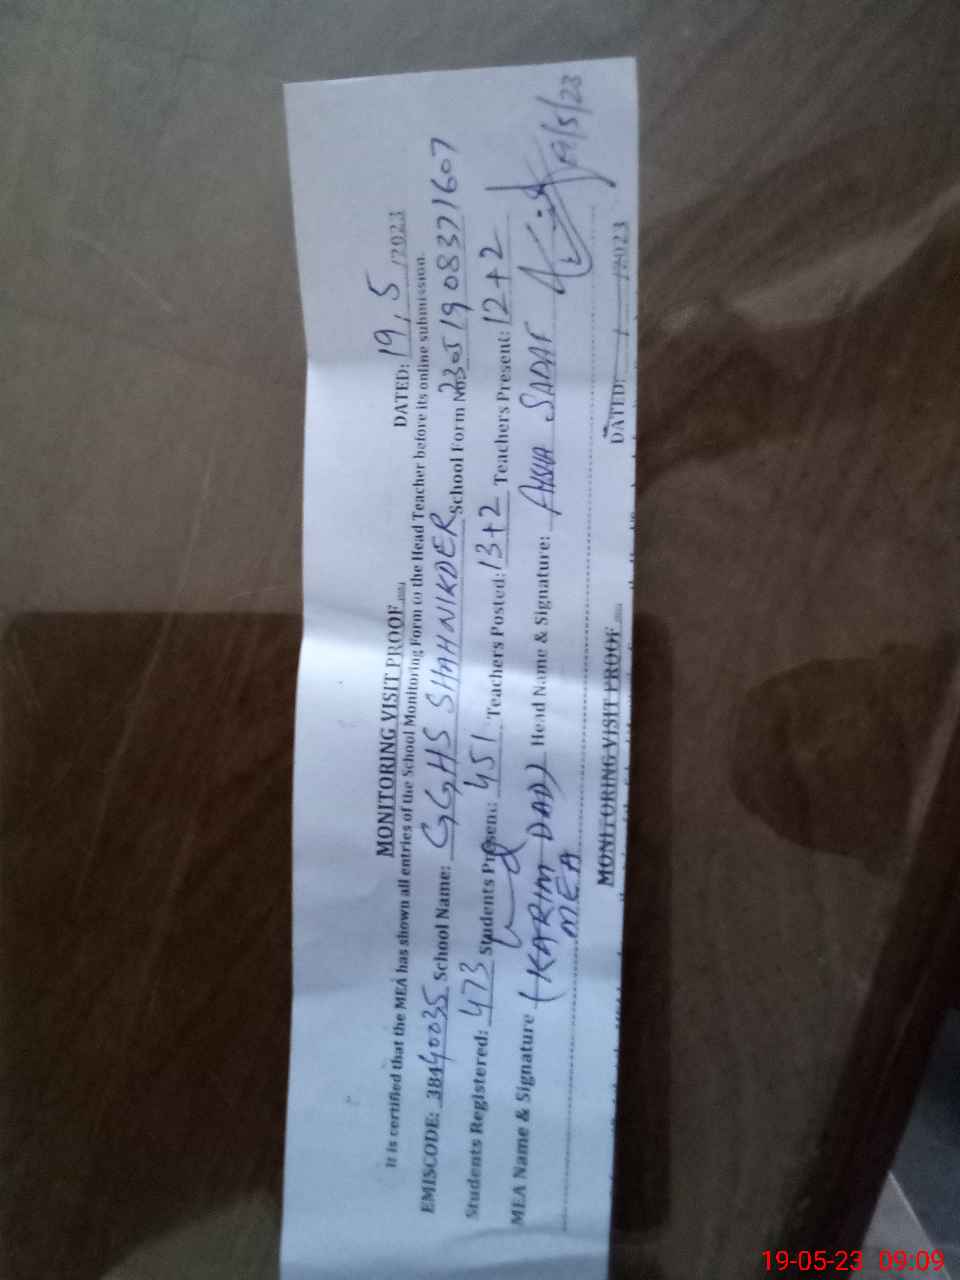 MONITORING VISIT PROOF
DATED: 19, 5 /2023
It is certified that the MEA has shown all entries of the School Monitoring Form to the Head Teacher before its online submission.
EMISCODE: 38440035 School Name: G,G,HS SHAHNIKDER School Form No 23051908371607
Students Registered: 473 Students Present: 451 Teachers Posted: 13+2 Teachers Present: 12+2
MEA Name & Signature (KARIM DAD) Head Name & Signature: SADAF 19/5/23
MEA
MONITORING VISIT PROOF
DATED: / /2023
19-05-23 09:09